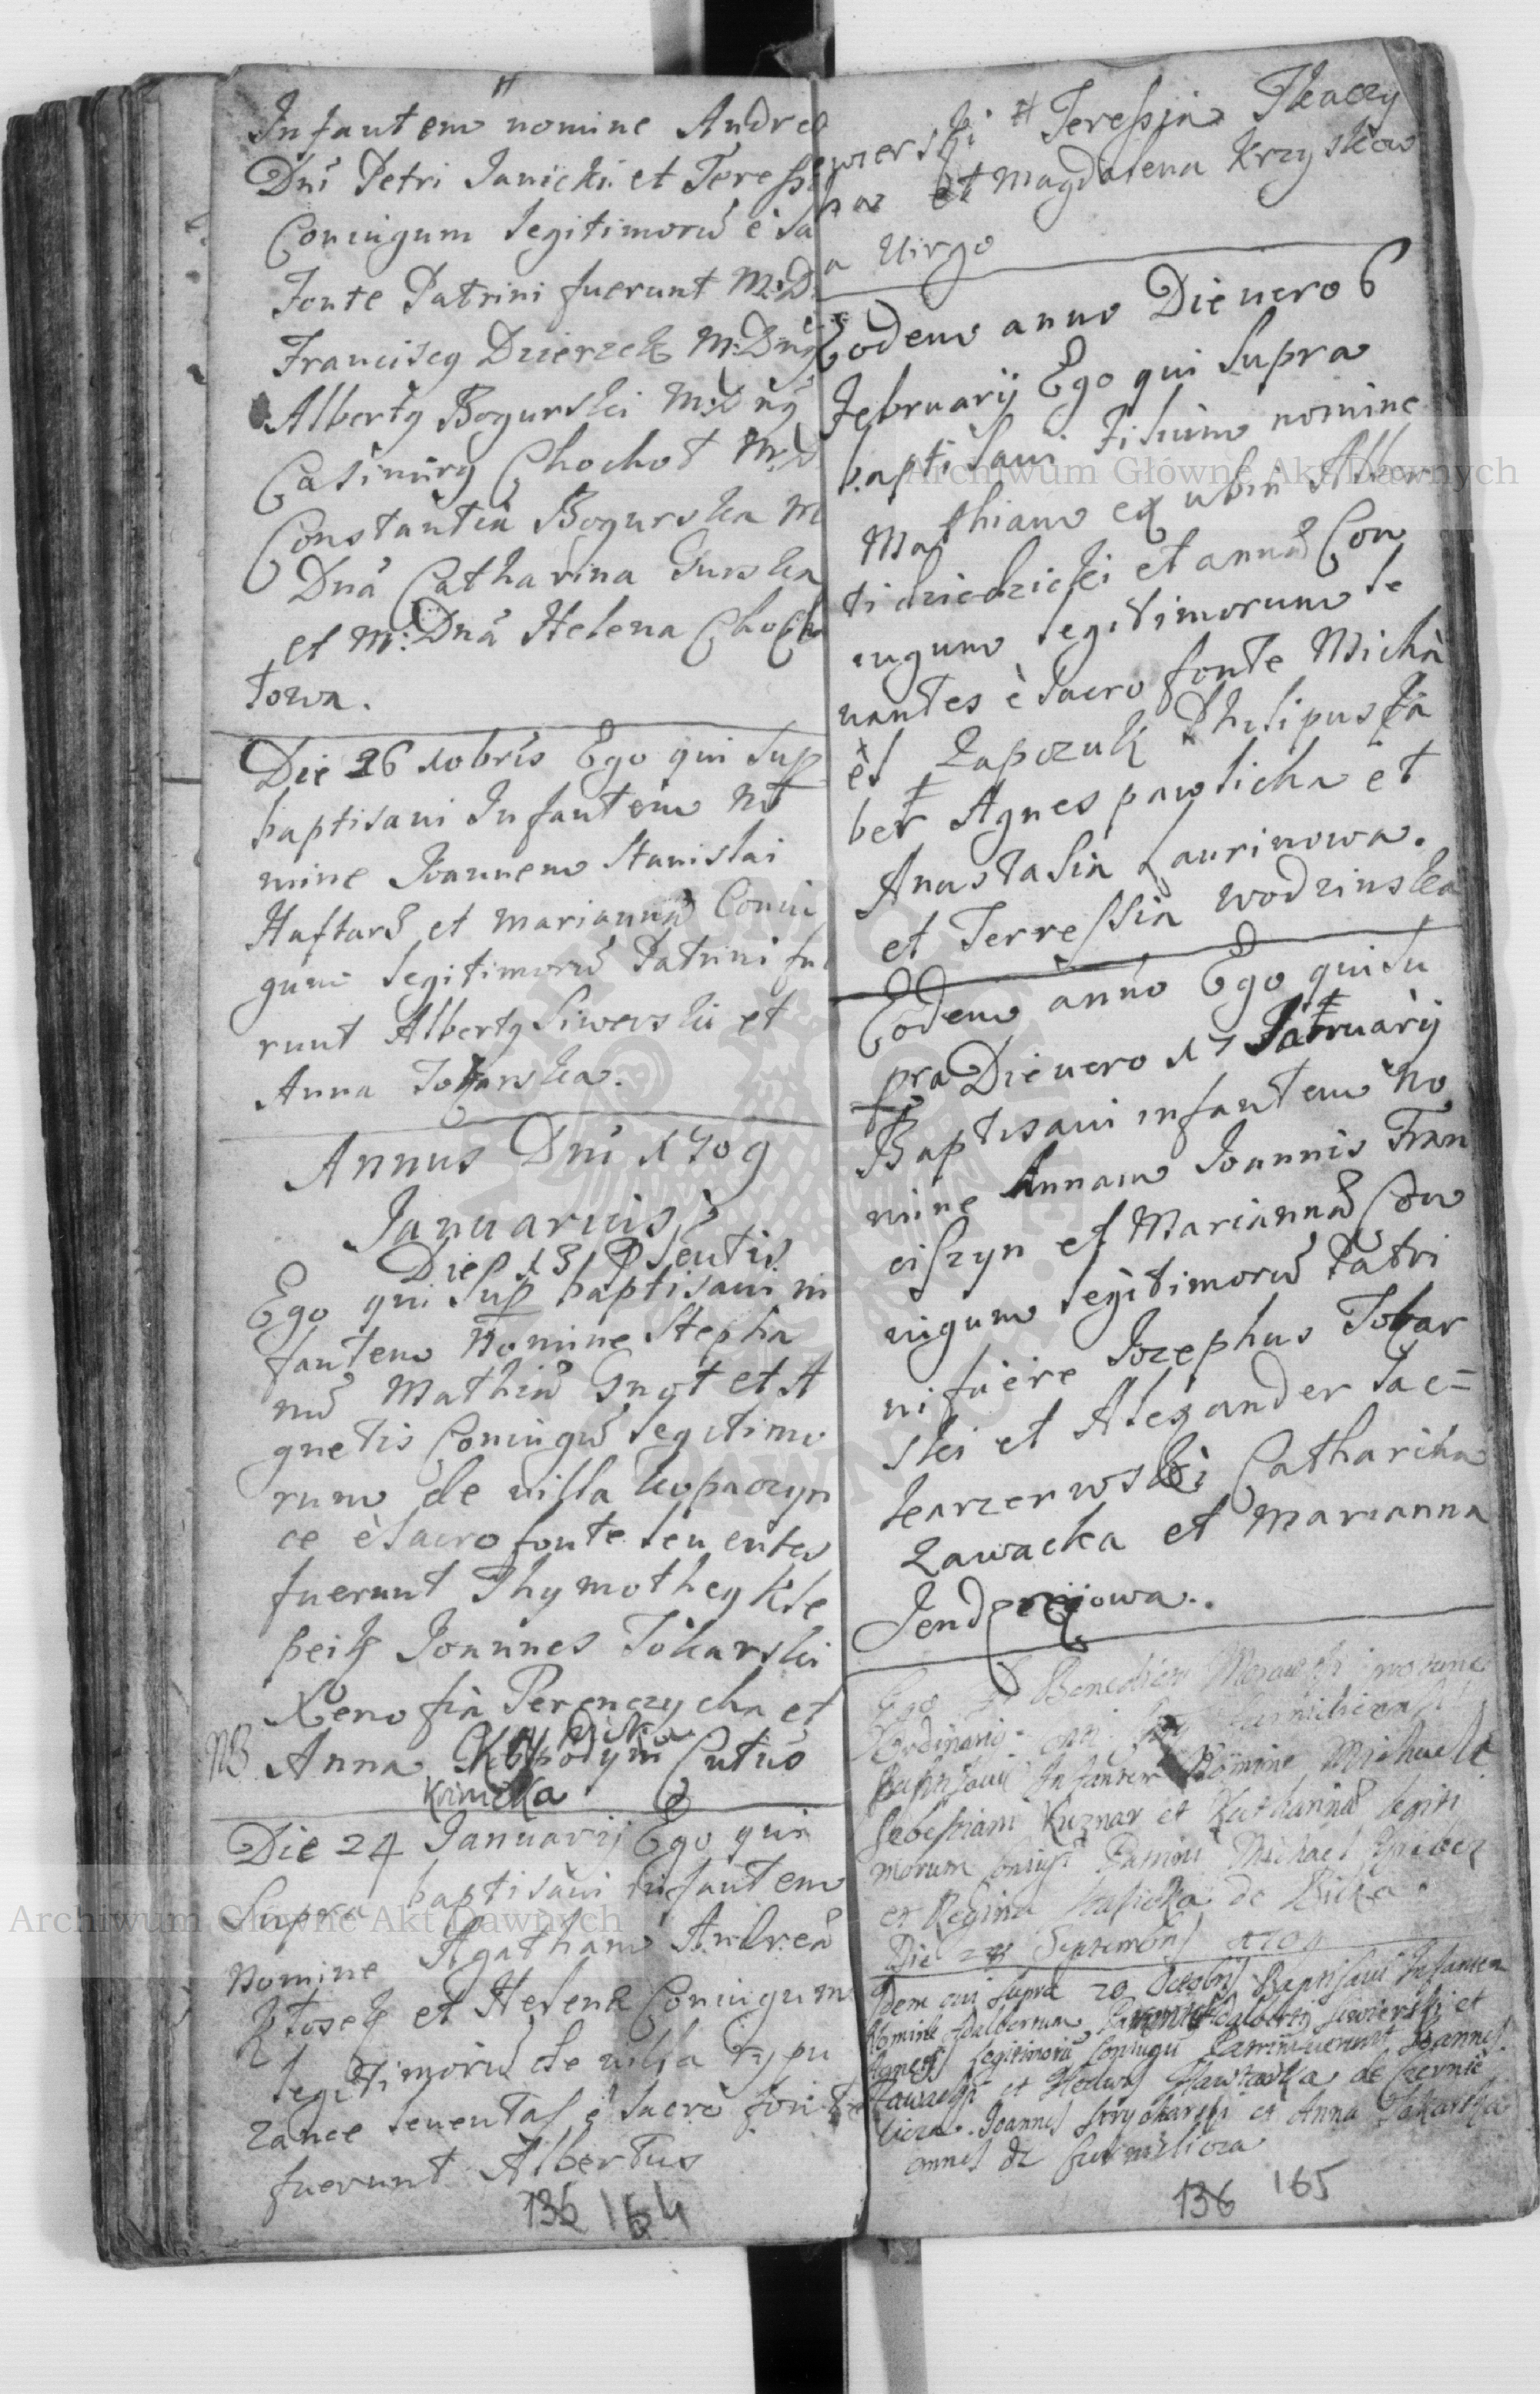 Infantem nomine Andrea
Dni Petri Janicki et Teressi
Coniugum legitimorũ è sa
Fonte Patrini fuerunt M:D
Franciscq Dzierzek M:Dnq
Albertq Bogurski M:Dnq
Casimirq Chochot M:D
Constantia Bogurska M
Dna Catharina Gurska
et M: Dna Helena Chocho
towa.
Die 26 xobris Ego qui sup
baptisavi Infantem no
mine Joannem Stanislai
Haftarz et marianna Coniu
gum legitimorũ Patrini fu
runt Albertq Siwerski et
Anna Tokarska.
Annus Dni 1709
Januarius
Die 13 pseutis
Ego qui sup baptisavi in
fantem nomine Stepha
nũ Mathia Gnyt et A
gnetis Coniugũ legitimo
rum de villa kopaczyn
ce è sacro fonte leuentes
fuerunt Thymotheq Kle
peik Joannes Tokarski
Xenofia Perenczycha et
NB Anna Cutus
Die 24 Januarij Ego qui
Supra baptisavi infantem
nomine Agatham Andrea
Ktosek et Helena Coniugum
legitimorũ de villa rypu
zance leuentas è sacro fonte
fuerunt Albertus
136 164
wierski # Teressia Tkaczy
ha et Magdalena Krzyskow
a Virgo
Eodem anno Die vero 6
Februarij Ego qui supra
baptisavi Filium nomine
Mathiam ex ubin Alber
ti dziedzicki et anna Con
iugum legitimorum le
uantes è sacro fonte Micha
ël Zapczuk Philipus Fa
ber Agnes pawlicha et
Anastasia Laurinowa.
et Terressia wodzinska
Eodem anno Ego qui su
pra Die vero 17 Februarij
Baptisavi infantem no
mine Annam Joannis Fran
ciszyn et Marianna Con
iugum legitimorũ Patri
ni fuere Jozephus Tokar
ski et Alexander Kac=
karzerwski Catharina
Zawacka et Marianna
Jendrzejowa.
Ego Benedictus
Ordinario
Baptisavi Infantem Nomine Michaele
Sebestiani Kuznar et Katharina legiti
morum coniugũ Patrini Michael
et Regina de
Die Septembris 1709
Idem qui supra 20 Octobris Baptisavi Infantem
Nomine Adalbertum Siwierski et
Agnetis legitimorũ coniugũ Patrini fuerunt Joannes
Zawadzki et de Czernie
Joannes et Anna Tokarska
omnes de
136 165
Archiwum Główne Akt Dawnych
Archiwum Główne Akt Dawnych